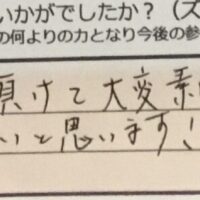 いかがでしたか？（ズ
の何よりの力となり今後の参
頂けて大変素
いと思います！